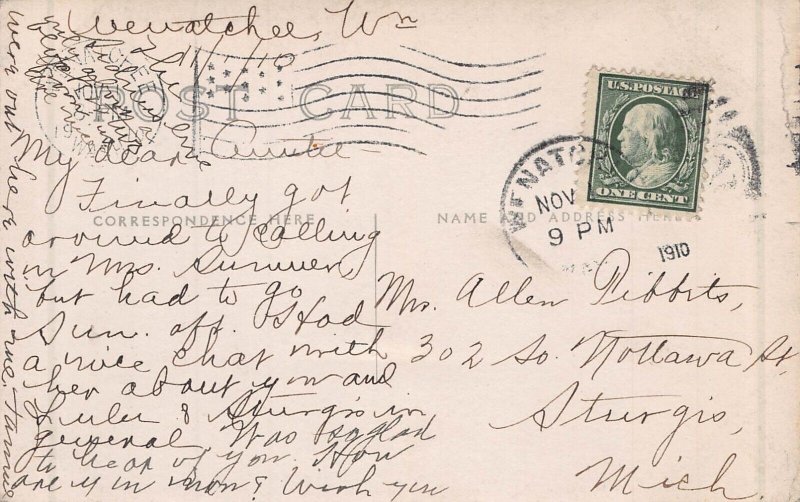 Wenatchee, Wn
11/1/10
POST CARD
U.S. POSTAGE
ONE CENT
WENATCHEE
NOV
9 PM
1910
My dear Auntie—
Finally got
CORRESPONDENCE HERE
around to calling
in Mrs. Sumner,
but had to go
Sun. aft. Had
a nice chat with
her about you and
Lulu & Sturgis in
general. Was so glad
to hear of you. How
are you now? Wish you
were out here with me.
NAME AND ADDRESS HERE
Mrs. Allen Tibbits,
302 So. Nottawa St,
Sturgis,
Mich.